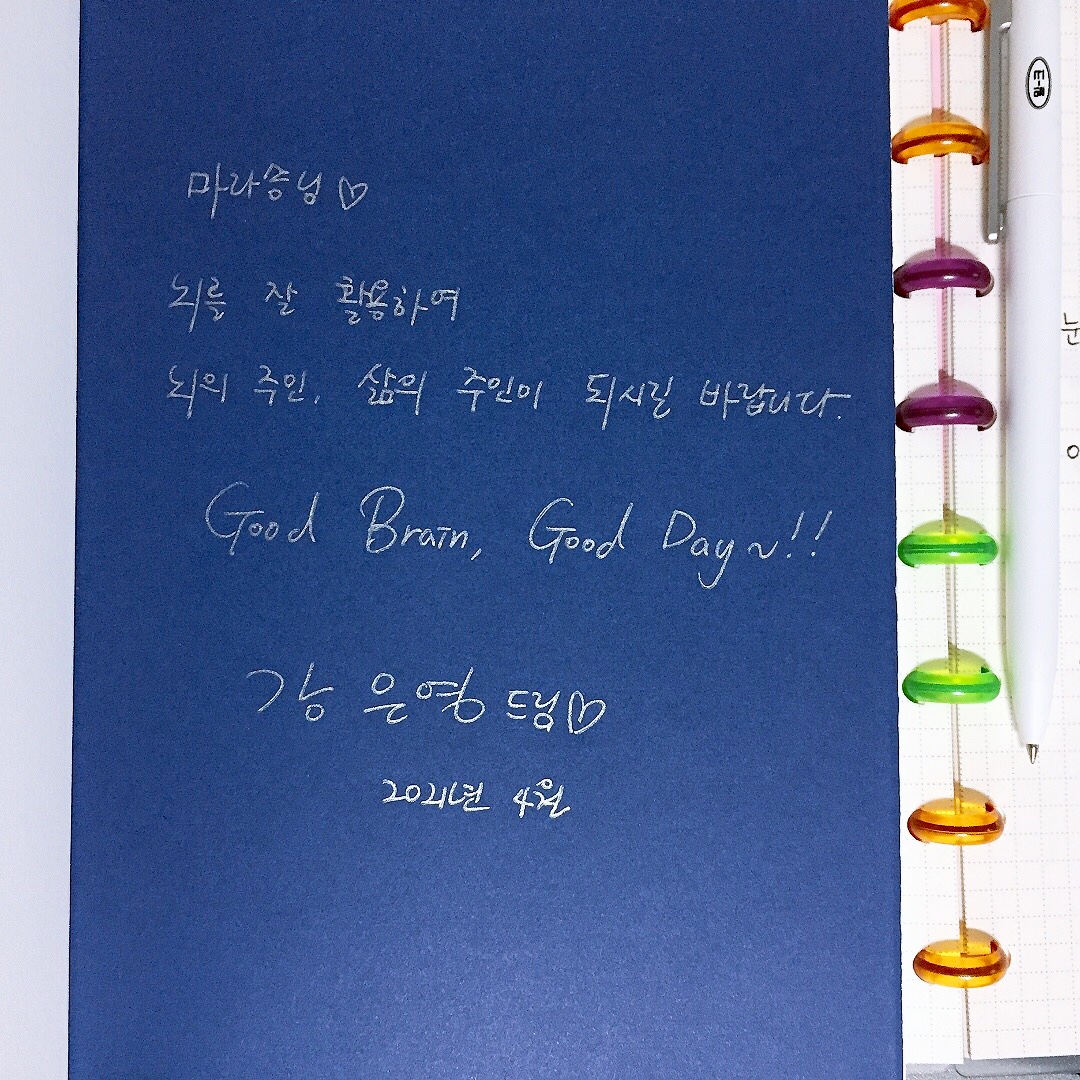 마라숑님♡
뇌를 잘 활용하여
뇌의 주인, 삶의 주인이 되시길 바랍니다.
Good Brain, Good Day~!!
강은영 드림♡
2021년 4월
눈